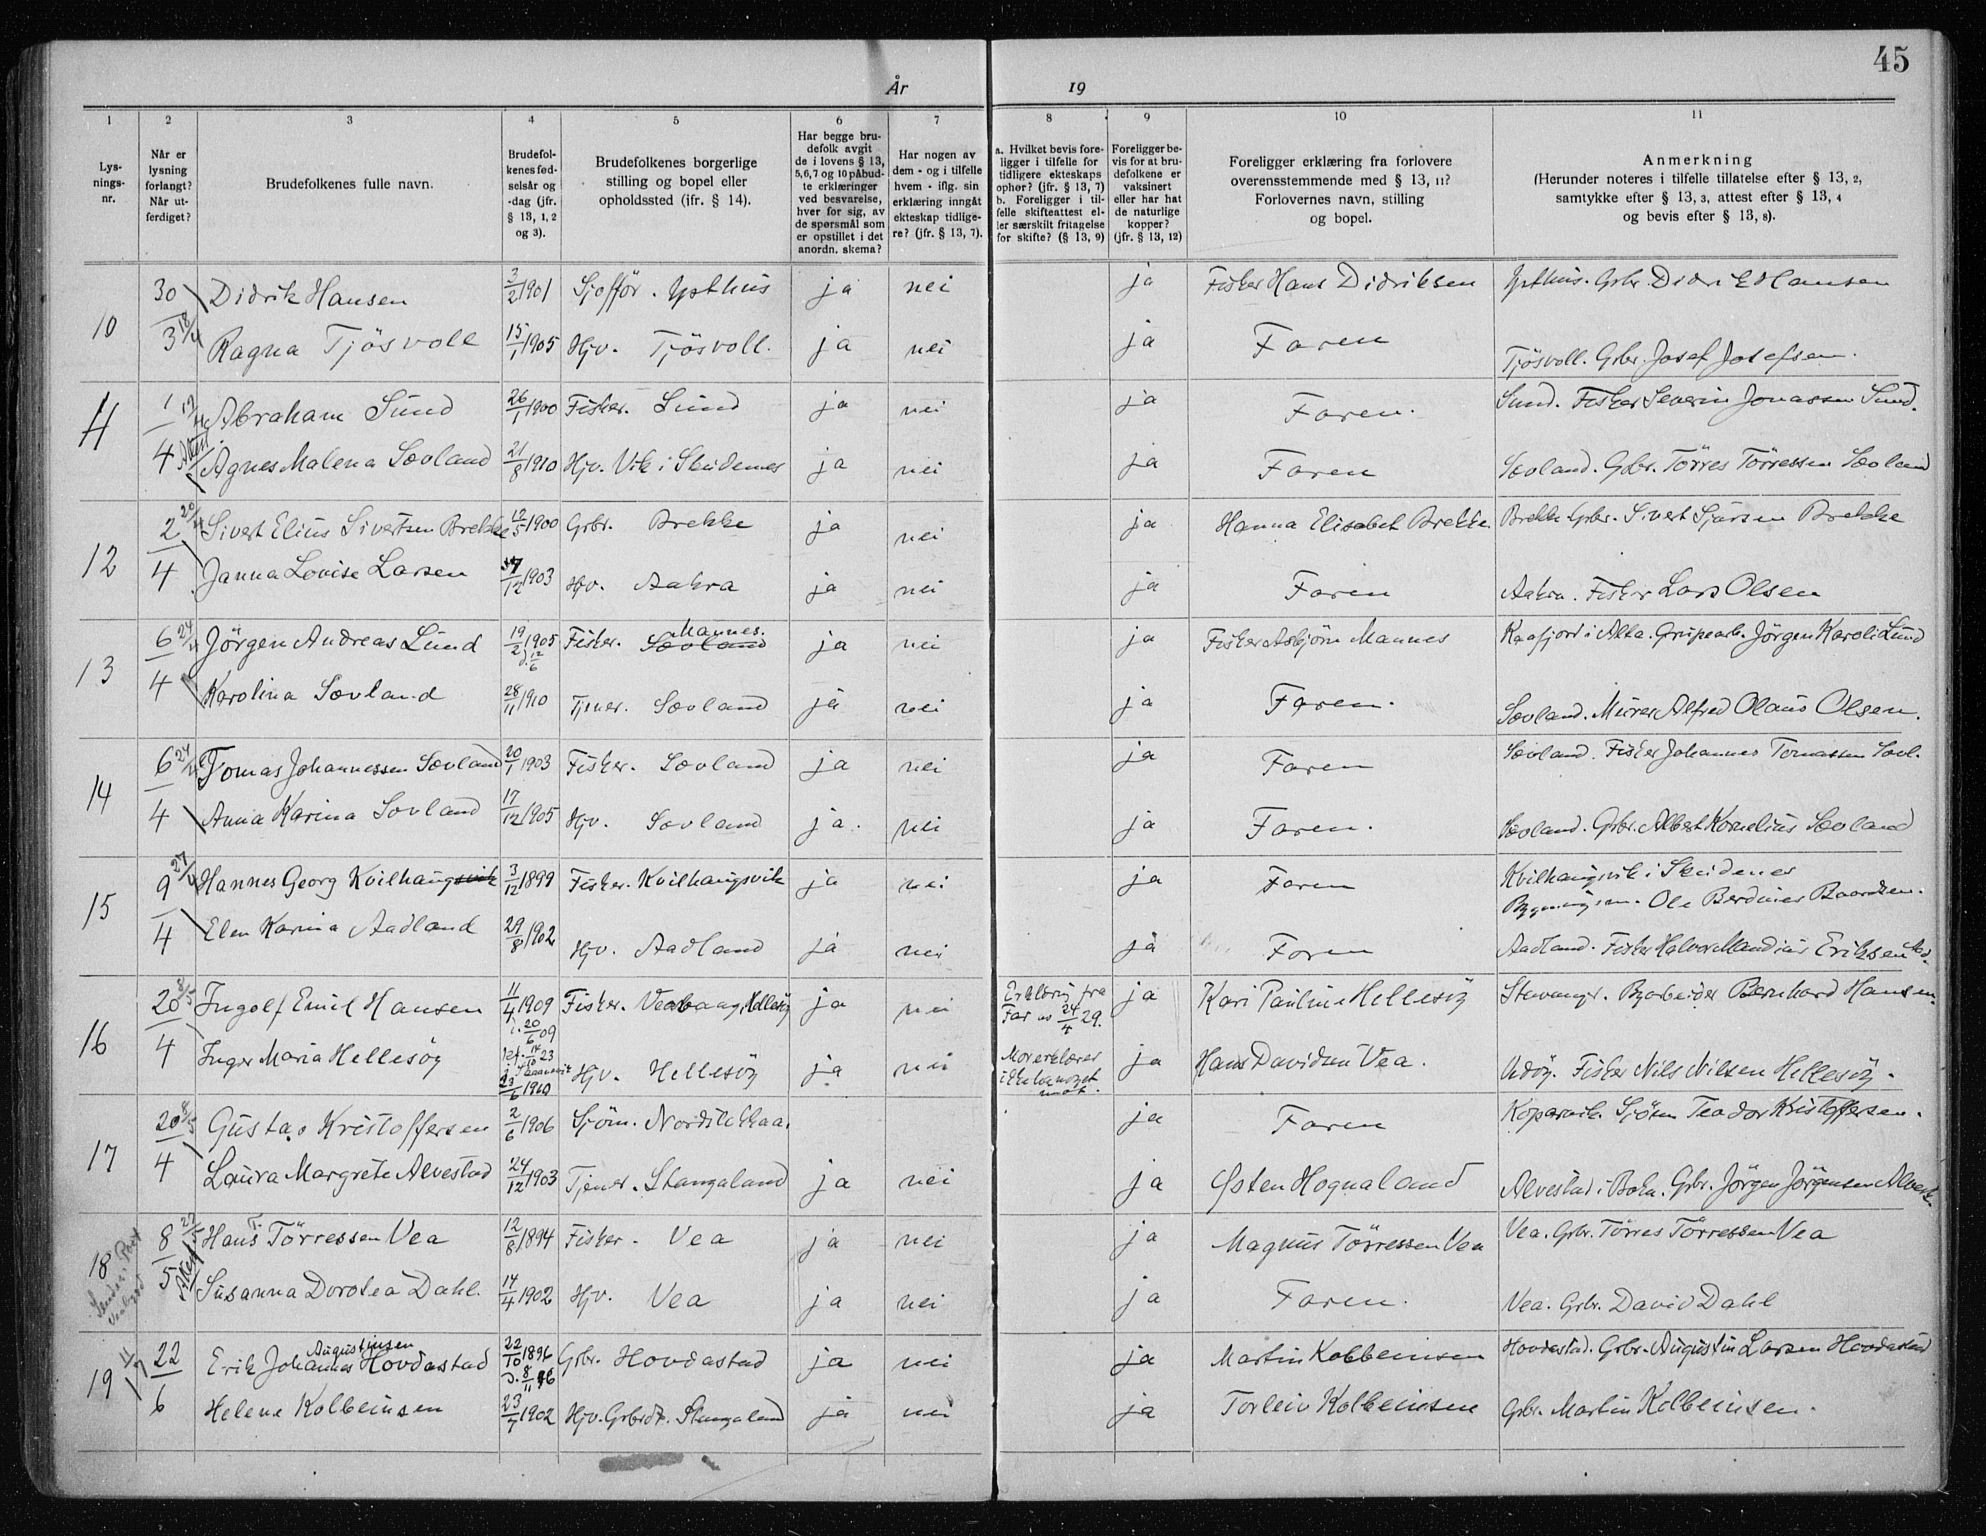 45
År 19
1 2 3 4 5 6 7 8 9 10 11
Lysningsnr.
Når er lysning forlangt? Når utferdiget?
Brudefolkenes fulle navn.
Brudefolkenes fødselsår og -dag (jfr. § 13, 1, 2 og 3).
Brudefolkenes borgerlige stilling og bopel eller opholdssted (ifr. § 14).
Har begge brudefolk avgit de i lovens § 13, 5,6,7 og 10 påbudte erklæringer ved besvarelse, hver for sig, av de spørsmål som er opstillet i det anordn. skema?
Har nogen av dem - og i tilfelle hvem - iflg. sin erklæring inngåt ekteskap tidligere? (jfr. § 13, 7).
a. Hvilket bevis foreligger i tilfelle for tidligere ekteskaps ophør? (jfr. § 13, 7) b. Foreligger i tilfelle skifteattest eller særskilt fritagelse for skifte? (§ 13, 9)
Foreligger bevis for at brudefolkene er vaksinert eller har hat de naturlige kopper? (jfr. § 13, 12)
Foreligger erklæring fra forlovere overensstemmende med § 13, 11? Forlovernes navn, stilling og bopel.
Anmerkning (Herunder noteres i tilfelle tillatelse efter § 13, 2, samtykke efter § 13, 3, attest efter § 13, 4 og bevis efter § 13, 8).
10 30/3 18/4 Didrik Hansen 3/2 1901 Sjofför. Ypthus ja nei ja Fisker Hans Didriksen Ypthus. Grbr. Didrik Hansen
Ragna Tjösvoll 15/1 1905 Hjv. Tjösvoll. ja nei ja Faren Tjösvoll. Grbr. Josef Josefsen.
11 1/4 19/4 Attest Abraham Sund 26/1 1900 Fisker. Sund ja nei ja Faren. Sund. Fisker Severin Jonassen Sund.
Agnes Malena Sævland 21/8 1910 Hjv. Vik i Skudenes ja nei ja Faren Sævland. Grbr. Törres Törressen Sævland
12 2/4 20/4 Sivert Elius Sivertsen Brekke 12/5 1900 Grbr. Brekke ja nei ja Hanna Elisabet Brekke. Brekke Grbr. Sivert Sjursen Brekke
Janna Lovise Larsen 7/12 1903 Hjv. Aakra ja nei ja Faren Aakra. Fisker Lars Olsen
13 6/4 24/4 Jörgen Andreas Lund 19/2 1905 d. 12/6 Fisker. Sævland Mannes. ja nei ja Fisker Asbjörn Mannes Kaafjord i Alta. Grupearb. Jörgen Karoli Lund
Karolina Sævland 28/11 1910 Tjener. Sævland ja nei ja Faren. Sævland. Murer Alfred Olaus Olsen.
14 6/4 24/4 Tomas Johannessen Sævland 20/1 1903 Fisker. Sævland ja nei ja Faren Sævland. Fisker Johannes Tomassen Sævl.
Anna Karina Sævland 17/12 1905 Hjv. Sævland ja. nei ja Faren. Sævland. Grbr. Albert Kornelius Sævland
15 9/4 27/4 Hannes Georg Kvilhaugsvik 3/12 1899 Fisker. Kvilhaugsvik ja nei ja Faren Kvilhaugsvik i Skudenes
Bygningssm. Ole Berdinius Baardsen.
Elen Karina Aadland 29/8 1902 Hjv. Aadland ja nei ja Faren Aadland. Fisker Halvor Mandius Eriksen Aad.
16 20/4 8/5 Ingolf Emil Hansen 11/4 1909 d. 20/6 09 Fisker. Veabaag, Hellesöy ja nei Erklæring fra Far av 24/4 29. ja Kari Pauline Hellesöy Stavanger. Byarbeider Bernhard Hansen.
Inger Maria Hellesöy 23/6 1910 Hjv. Hellesöy ja nei Mor erklærer ikke ha noget imot. ja Hans Davidsen Vea. Udöy. Fisker Nils Nilsen Hellesöy.
17 20/4 8/5 Gustav Kristoffersen 2/6 1906 Sjöm. Nordstokkaa. ja Faren Kopervik. Sjöm Teodor Kristoffersen.
Laura Margrete Alvestad 24/12 1903 Tjener. Stangaland ja nei ja Østen Hognaland Alvestad i Bokn. Grbr. Jörgen Jörgensen Alvest.
18 8/5 22/5 Attest Hans T. Törressen Vea 12/8 1894 Fisker. Vea ja nei ja Magnus Törressen Vea Vea. Grbr. Törres Törressen Vea
Susanna Dorotea Dahl. 14/4 1902 Hjv. Vea ja nei ja Faren. Vea. Grbr. David Dahl
19 22/6 11/7 Erik Johannes Augustinsen Hovdastad 22/10 1896 d. 8/11 96 Grbr. Hovdastad ja nei ja Martin Kolbeinsen Hovdastad. Grbr. Augustin Larsen Hovdastad
Helene Kolbeinsen 23/7 1902 Hjv. Grbrdt. Stangaland ja nei ja Torleiv Kolbeinsen Grbr. Martin Kolbeinsen.